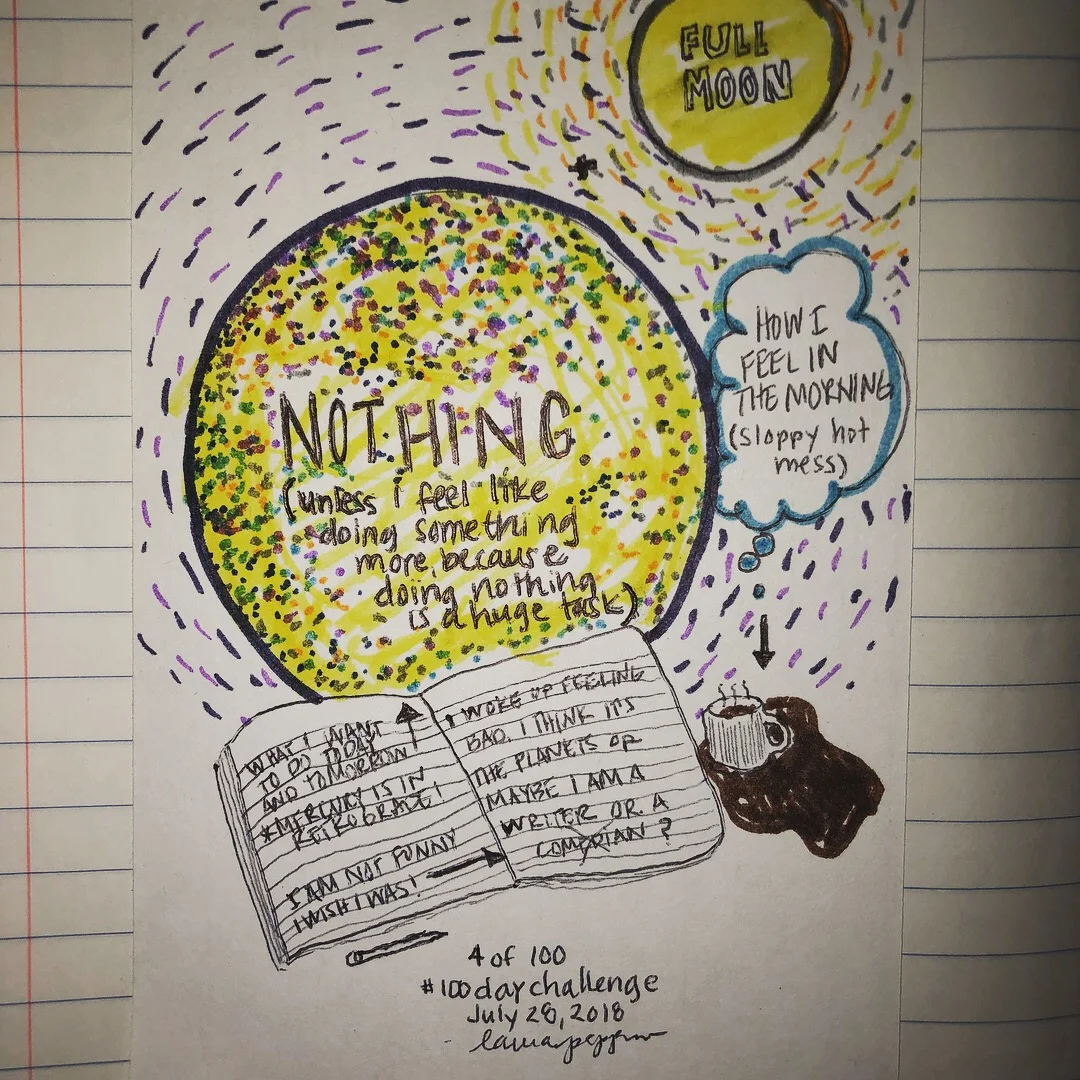 FULL
MOON
HOW I
FEEL IN
THE MORNING
(sloppy hot
mess)
NOTHING
(unless i feel like
doing something
more because
doing nothing
is a huge task)
WHAT I WANT
TO DO TODAY
AND TOMORROW
*MERCURY IS IN
RETROGRADE!
I AM NOT FUNNY
I WISH I WAS!
I WOKE UP FEELING
BAD. I THINK IT'S
THE PLANETS OR
MAYBE I AM A
WRITER OR A
COMEDIAN?
4 of 100
#100daychallenge
July 28, 2018